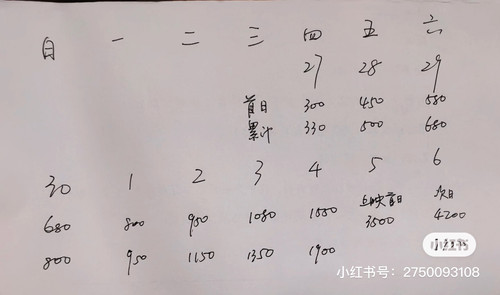 日 一 二 三 四 五 六
27 28 29
首日 300 450 580
累计 330 500 680
30 1 2 3 4 5 6
680 800 950 1080 1550 上映首日 3500 次日 4200
800 950 1150 1350 1900
小红书
小红书号：2750093108